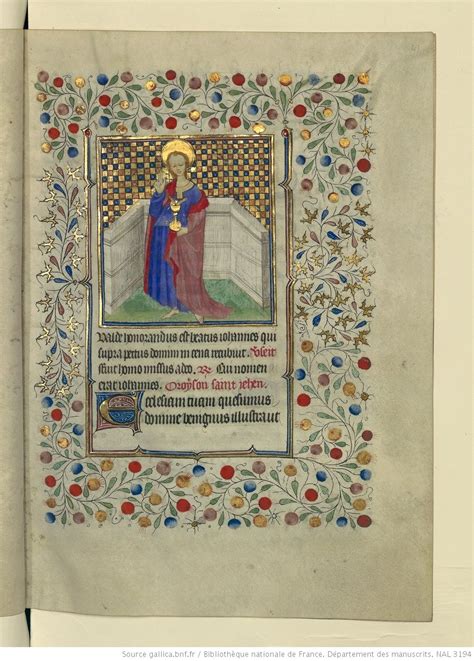 Valde honorandus est beatus iohannes qui
supra pectus domini in cena recubuit. V̶ Fuit
homo missus a deo. R̶ Cui nomen
erat iohannes. Oroyson saint iehen.
Ecclesiam tuam quesumus
domine benignus illustraut
Source gallica.bnf.fr / Bibliothèque nationale de France, Département des manuscrits, NAL 3194